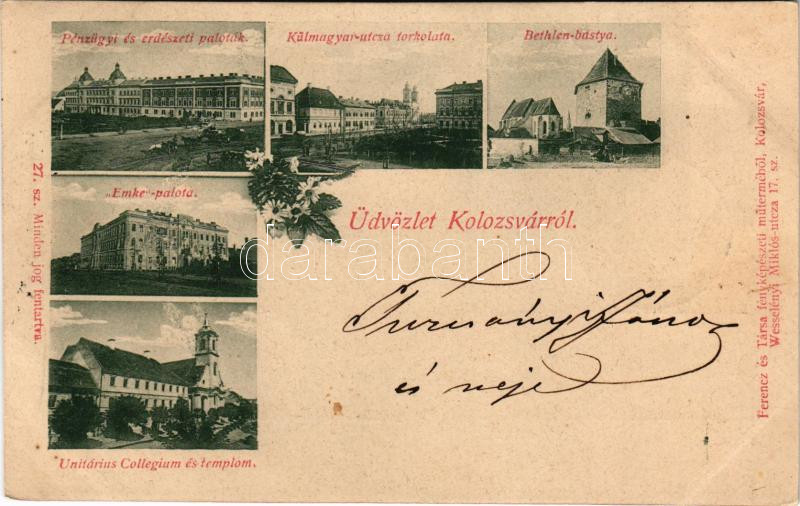 Pénzügyi és erdészeti paloták.
Külmagyar-utcza torkolata.
Bethlen-bástya.
„Emke"-palota.
Üdvözlet Kolozsvárról.
darabanth
és neje
Unitárius Collegium és templom.
27. sz. Minden jog fentartva.
Ferencz és Társa fényképészeti műterméből, Kolozsvár,
Wesselényi Miklós-utcza 17. sz.